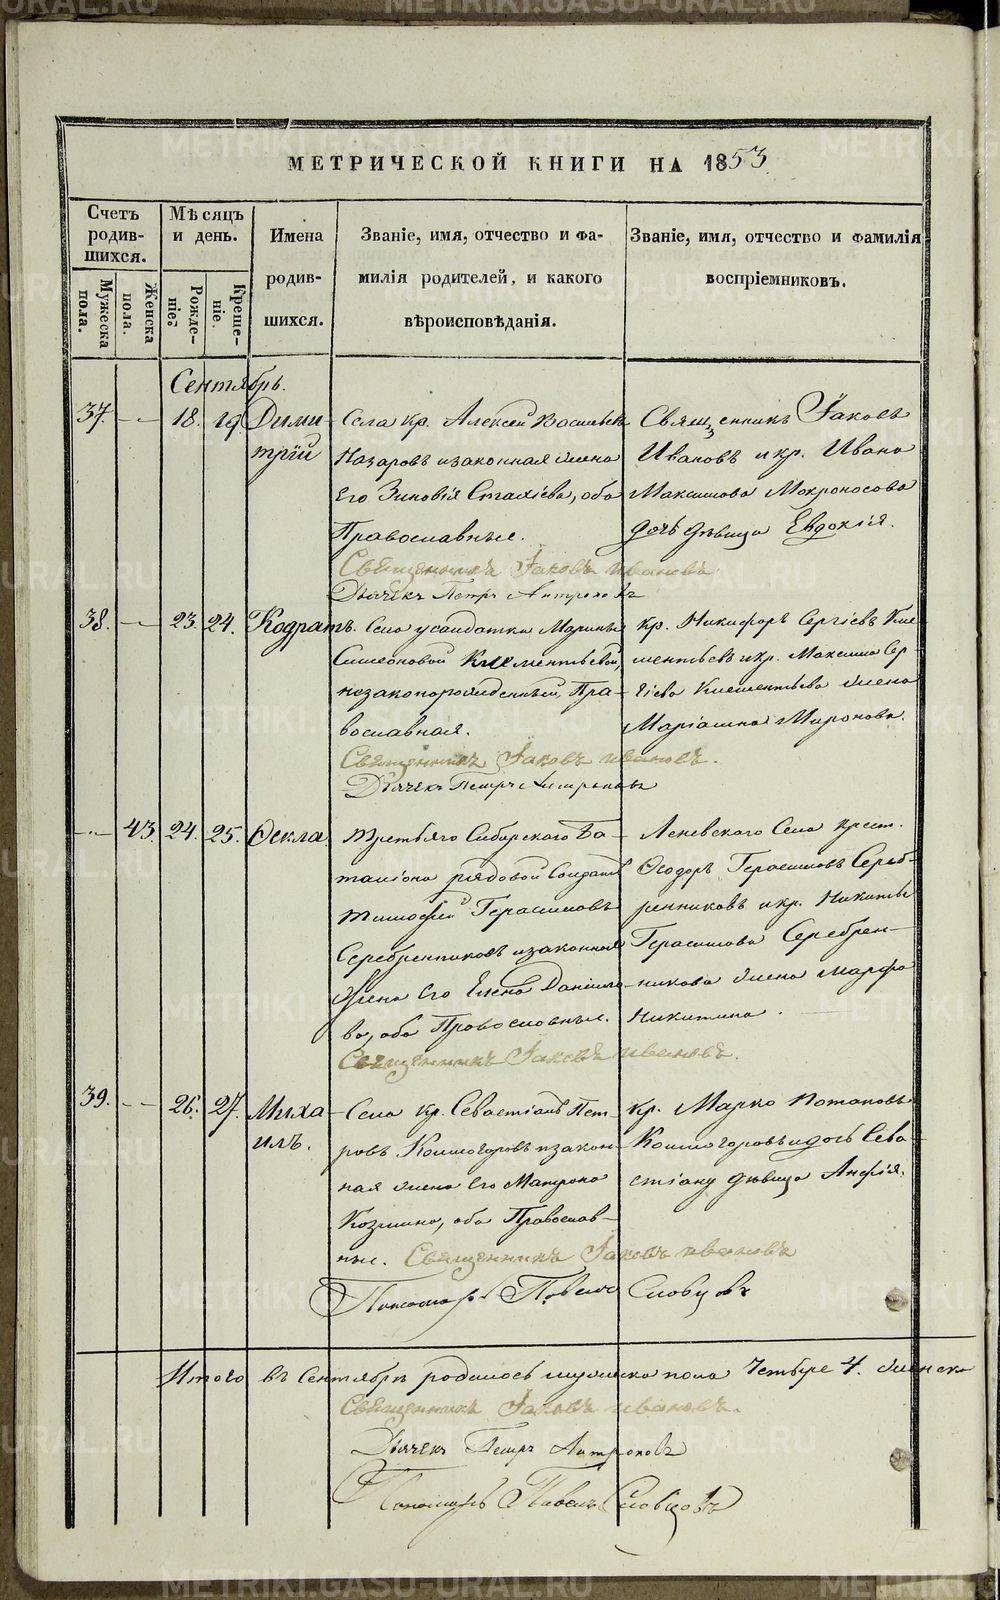 МЕТРИЧЕСКОЙ КНИГИ НА 1853
Счетъ родив-шихся.
Мужеска пола.
Женска пола.
Мѣсяцъ и день.
Рожде-ніе.
Креще-ніе.
Имена родив-шихся.
Званіе, имя, отчество и фа-
милія родителей, и какого
вѣроисповѣданія.
Званіе, имя, отчество и фамилія
воспріемниковъ.
Сентябрь.
37. — 18. 19. Дими-
трій
Села кр. Алексѣй Васильевъ
Назаровъ и законная жена
Его Зиновія Стахіева, оба
Православные.
Священникъ Іаковъ Ивановъ
Дьячекъ Петръ Антроповъ
Священникъ Іаковъ
Ивановъ и кр. Ивана
Максимова Мокроносова
дочь дѣвица Евдокія.
38. — 23. 24. Кодратъ.
Села у солдатки Марины
Симеоновой Клементьевой,
незаконорожденный, Пра-
вославная.
Священникъ Іаковъ Ивановъ.
Дьячекъ Петръ Антроповъ
кр. Никифоръ Сергіевъ Кле-
ментьевъ и кр. Максима Сер-
гіева Клементьева жена
Маріамна Миронова.
— 43. 24. 25. Ѳекла.
Третьяго Сибирскаго Ба-
таліона рядовой Солдатъ
Тимофей Герасимовъ
Серебренниковъ и законная
Жена Его Елена Данило-
ва, оба Православные.
Священникъ Іаковъ Ивановъ.
Леневскаго Села крест.
Ѳеодоръ Герасимовъ Сереб-
ренниковъ и кр. Никиты
Герасимова Серебрен-
никова жена Марфа
Никитина.
39. — 26. 27. Миха-
илъ.
Села кр. Севастіанъ Пет-
ровъ Колмогоровъ и закон-
ная жена Его Матрона
Козмина, оба Православ-
ные. Священникъ Іаковъ Ивановъ
Пономарь Павелъ Словцовъ
кр. Марко Потаповъ
Колмогоровъ и дочь Сева-
стіану дѣвица Анфія.
Итого въ Сентябрѣ родилось мужеска пола Четыре 4. женска
Священникъ Іаковъ Ивановъ.
Дьячекъ Петръ Антроповъ
Пономарь Павелъ Словцовъ
METRIKI.GASO-URAL.RU